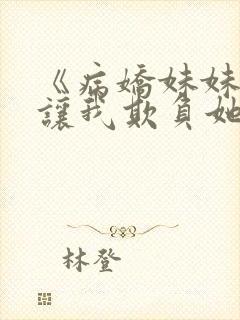 《病嬌妹妹
讓我欺負她
林登